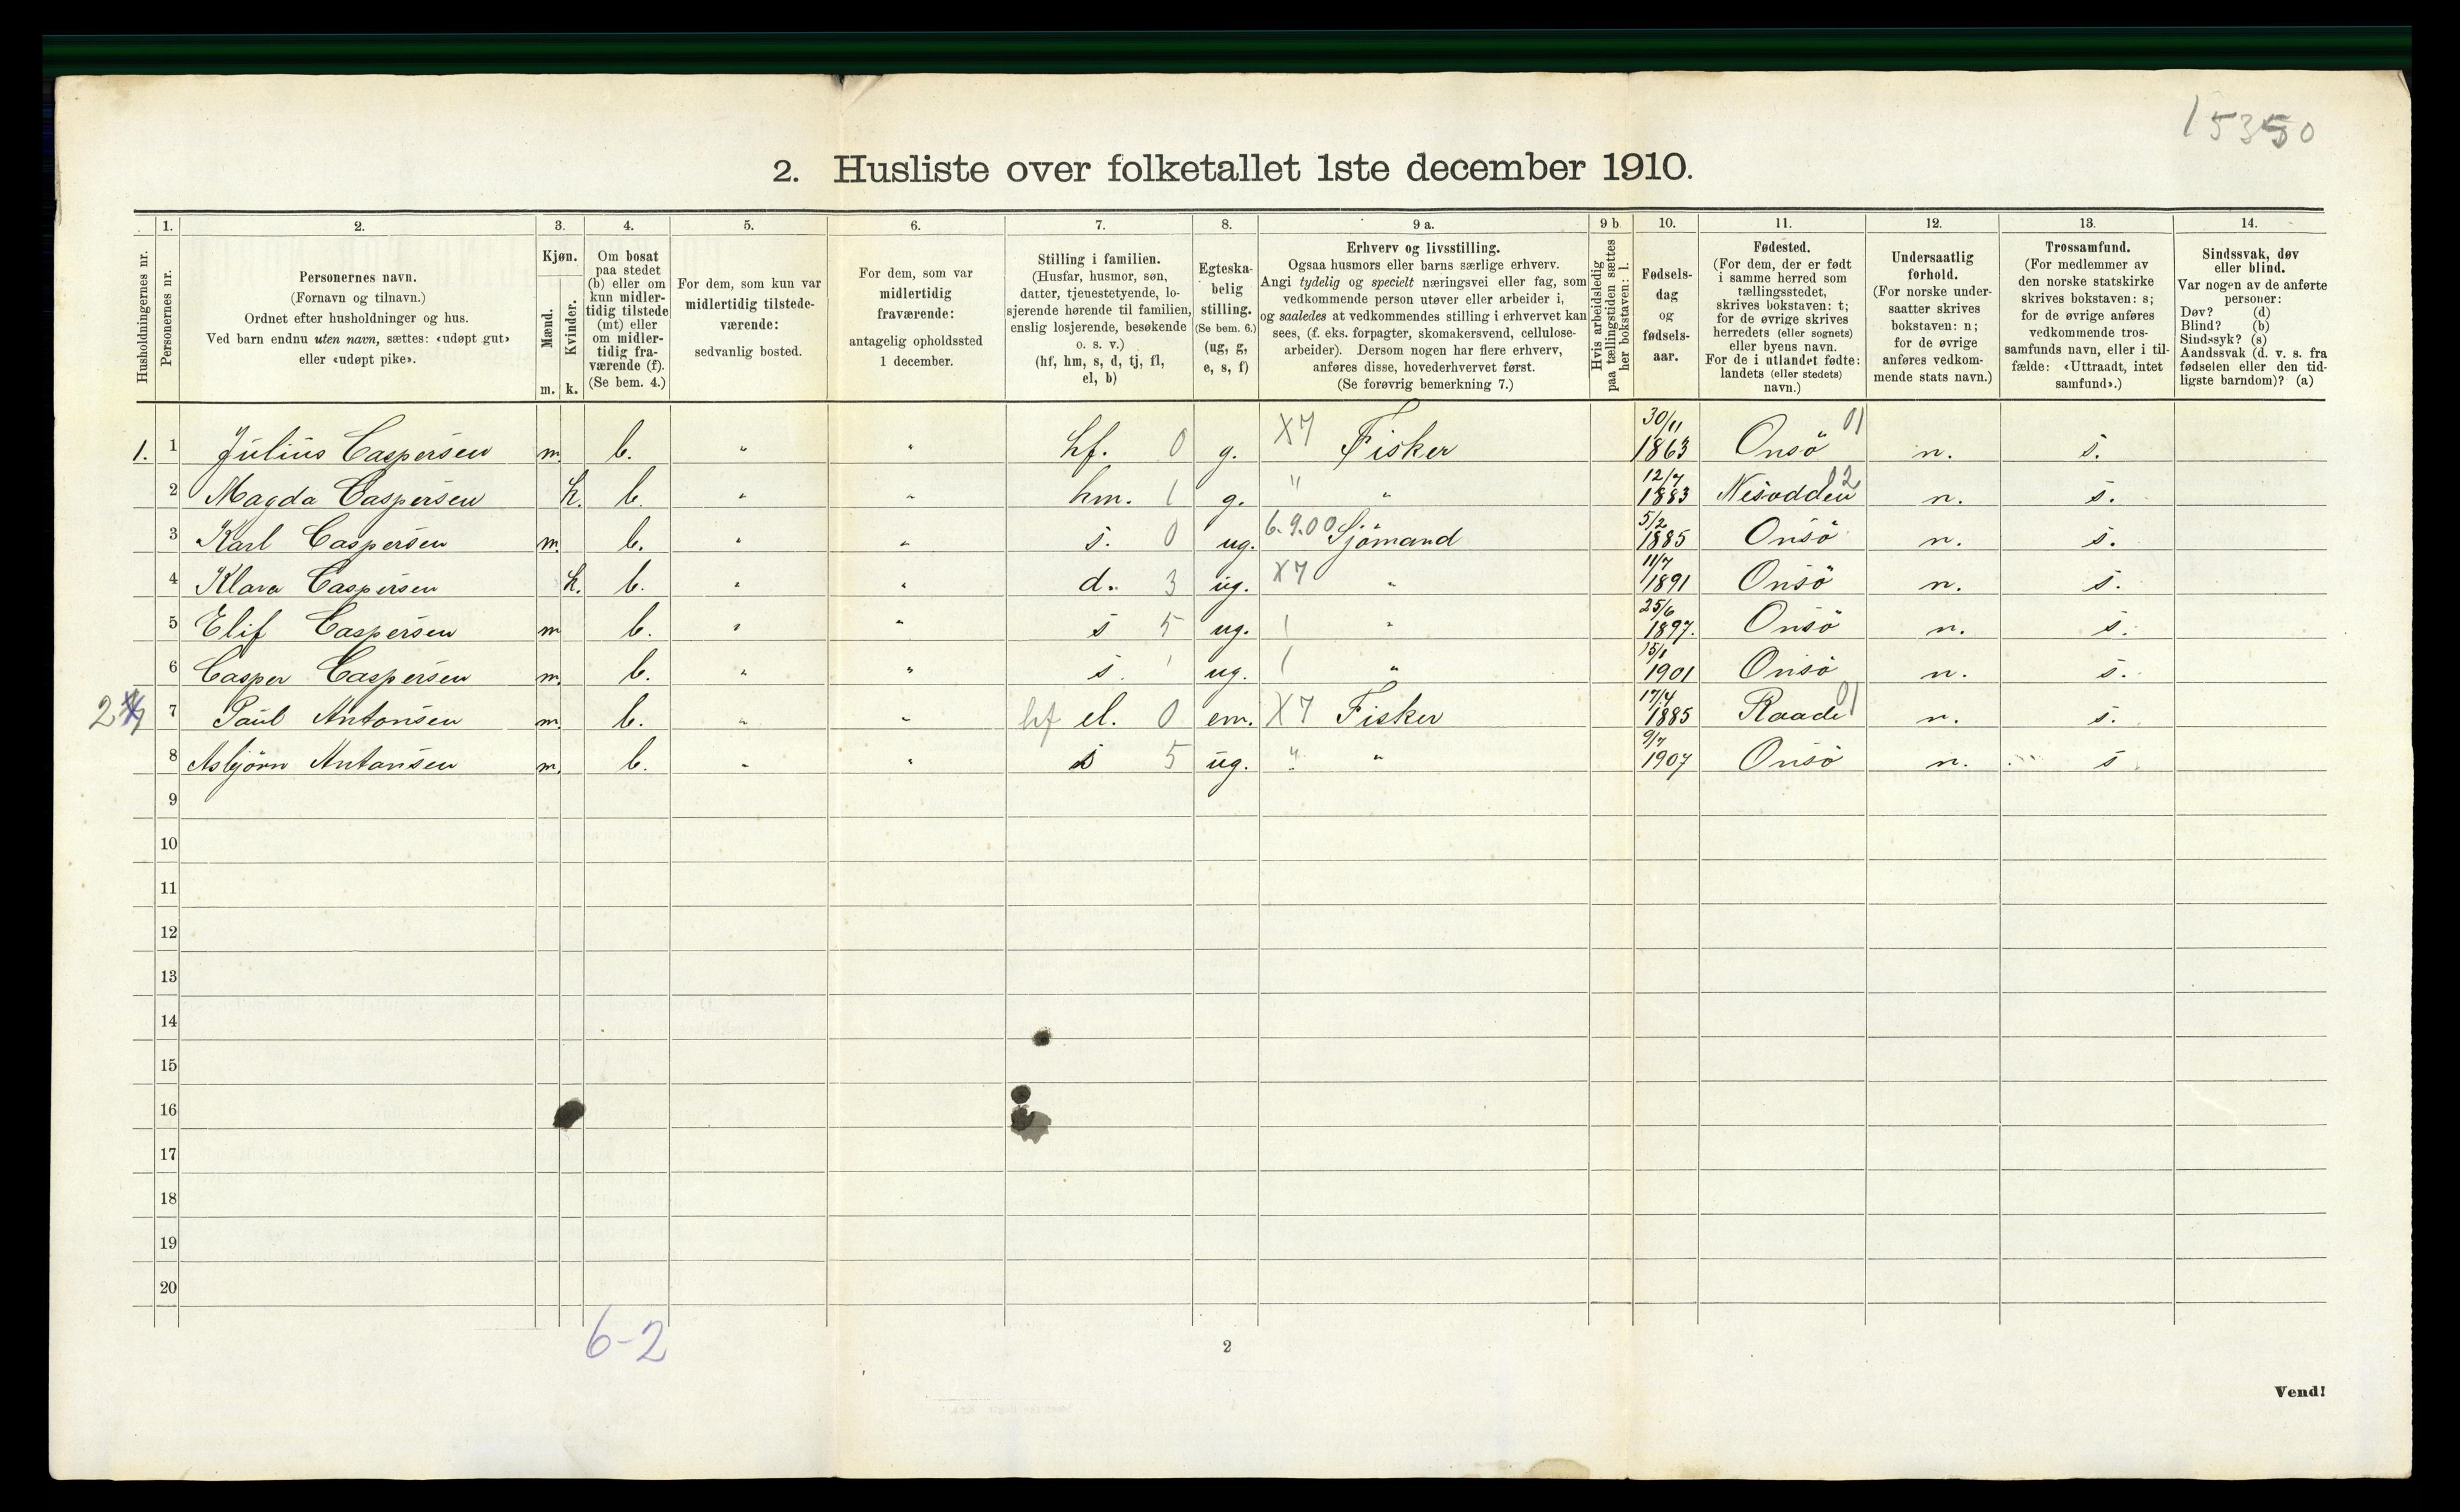 15350
2. Husliste over folketallet 1ste december 1910.
Husholdningernes nr.
1.
Personernes nr.
2.
Personernes navn.
(Fornavn og tilnavn.)
Ordnet efter husholdninger og hus.
Ved barn endnu uten navn, sættes: «udøpt gut»
eller «udøpt pike».
3.
Kjøn.
Mænd.
Kvinder.
m. k.
4.
Om bosat
paa stedet
(b) eller om
kun midler-
tidig tilstede
(mt) eller
om midler-
tidig fra-
værende (f).
(Se bem. 4.)
5.
For dem, som kun var
midlertidig tilstede-
værende:
sedvanlig bosted.
6.
For dem, som var
midlertidig
fraværende:
antagelig opholdssted
1 december.
7.
Stilling i familien.
(Husfar, husmor, søn,
datter, tjenestetyende, lo-
sjerende hørende til familien,
enslig losjerende, besøkende
o. s. v.)
(hf, hm, s, d, tj, fl,
el, b)
8.
Egteska-
belig
stilling.
(Se bem. 6.)
(ug, g,
e, s, f)
9 a.
Erhverv og livsstilling.
Ogsaa husmors eller barns særlige erhverv.
Angi tydelig og specielt næringsvei eller fag, som
vedkommende person utøver eller arbeider i,
og saaledes at vedkommendes stilling i erhvervet kan
sees, (f. eks. forpagter, skomakersvend, cellulose-
arbeider). Dersom nogen har flere erhverv,
anføres disse, hovederhvervet først.
(Se forøvrig bemerkning 7.)
9 b
Hvis arbeidsledig
paa tællingstiden sættes
her bokstaven: l.
10.
Fødsels-
dag
og
fødsels-
aar.
11.
Fødested.
(For dem, der er født
i samme herred som
tællingsstedet,
skrives bokstaven: t;
for de øvrige skrives
herredets (eller sognets)
eller byens navn.
For de i utlandet fødte:
landets (eller stedets)
navn.)
12.
Undersaatlig
forhold.
(For norske under-
saatter skrives
bokstaven: n;
for de øvrige
anføres vedkom-
mende stats navn.)
13.
Trossamfund.
(For medlemmer av
den norske statskirke
skrives bokstaven: s;
for de øvrige anføres
vedkommende tros-
samfunds navn, eller i til-
fælde: «Uttraadt, intet
samfund».)
14.
Sindssvak, døv
eller blind.
Var nogen av de anførte
personer:
Døv? (d)
Blind? (b)
Sindssyk? (s)
Aandssvak (d. v. s. fra
fødselen eller den tid-
ligste barndom)? (a)
1. 1 Julius Caspersen m. b. " " hf. 0 g. X7 Fisker 30/11 1863 Onsö 01 n. s.
2 Magda Caspersen k. b. " " hm. 1 g. " " 12/7 1883 Nesodden 02 n. s.
3 Karl Caspersen m. b. " " s. 0 ug. 6.9.00 Sjömand 5/2 1885 Onsö n. s.
4 Klara Caspersen k. b. " " d. 3 ug. X7 " 11/7 1891 Onsö n. s.
5 Elif Caspersen m. b. " " s 5 ug. " 25/6 1897. Onsö n. s.
6 Casper Caspersen m. b. " " s. ug. " 15/1 1901 Onsö n. s.
2 7 Paul Antonsen m. b. " " hf el. 0 em. X7 Fisker 17/4 1885 Raade 01 n. s.
8 Asbjörn Antonsen m. b. " " s 5 ug. " " 9/7 1907 Onsö n. s
9
10
11
12
13
14
15
16
17
18
19
20
6-2
2
Vend!